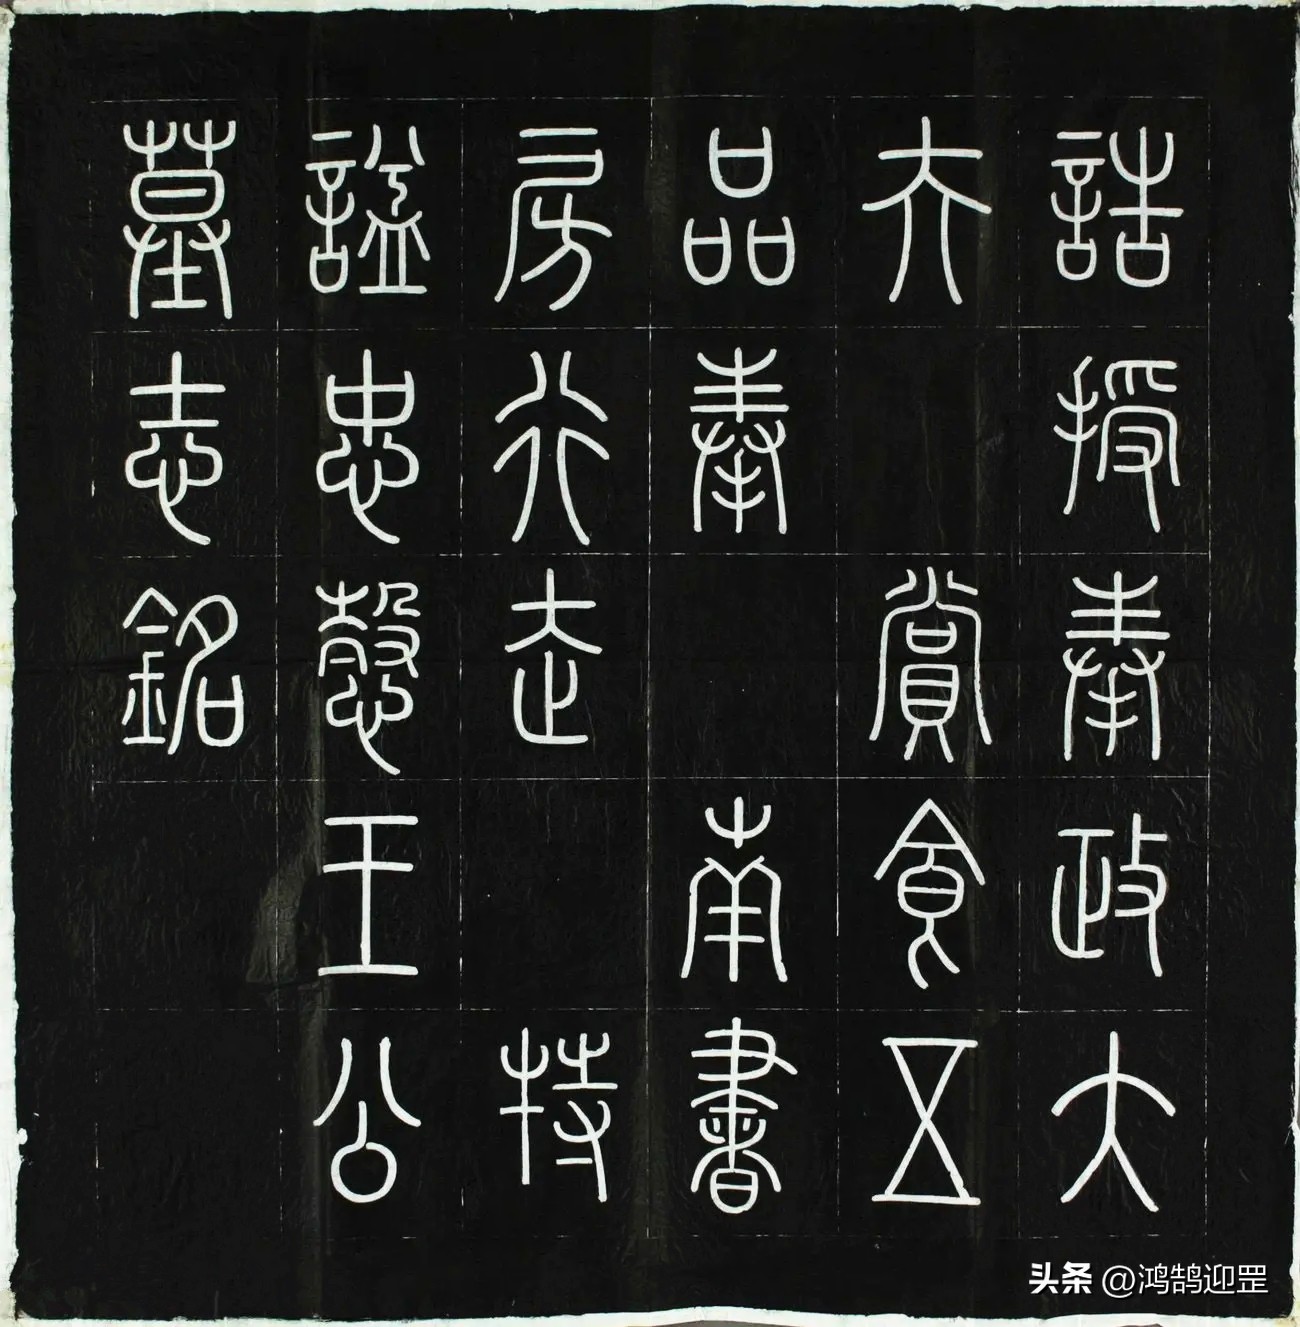 誥授奉政大
夫 賞食五
品奉 南書
房行走 特
諡忠慤王公
墓志銘
头条 @鸿鹄迎罡